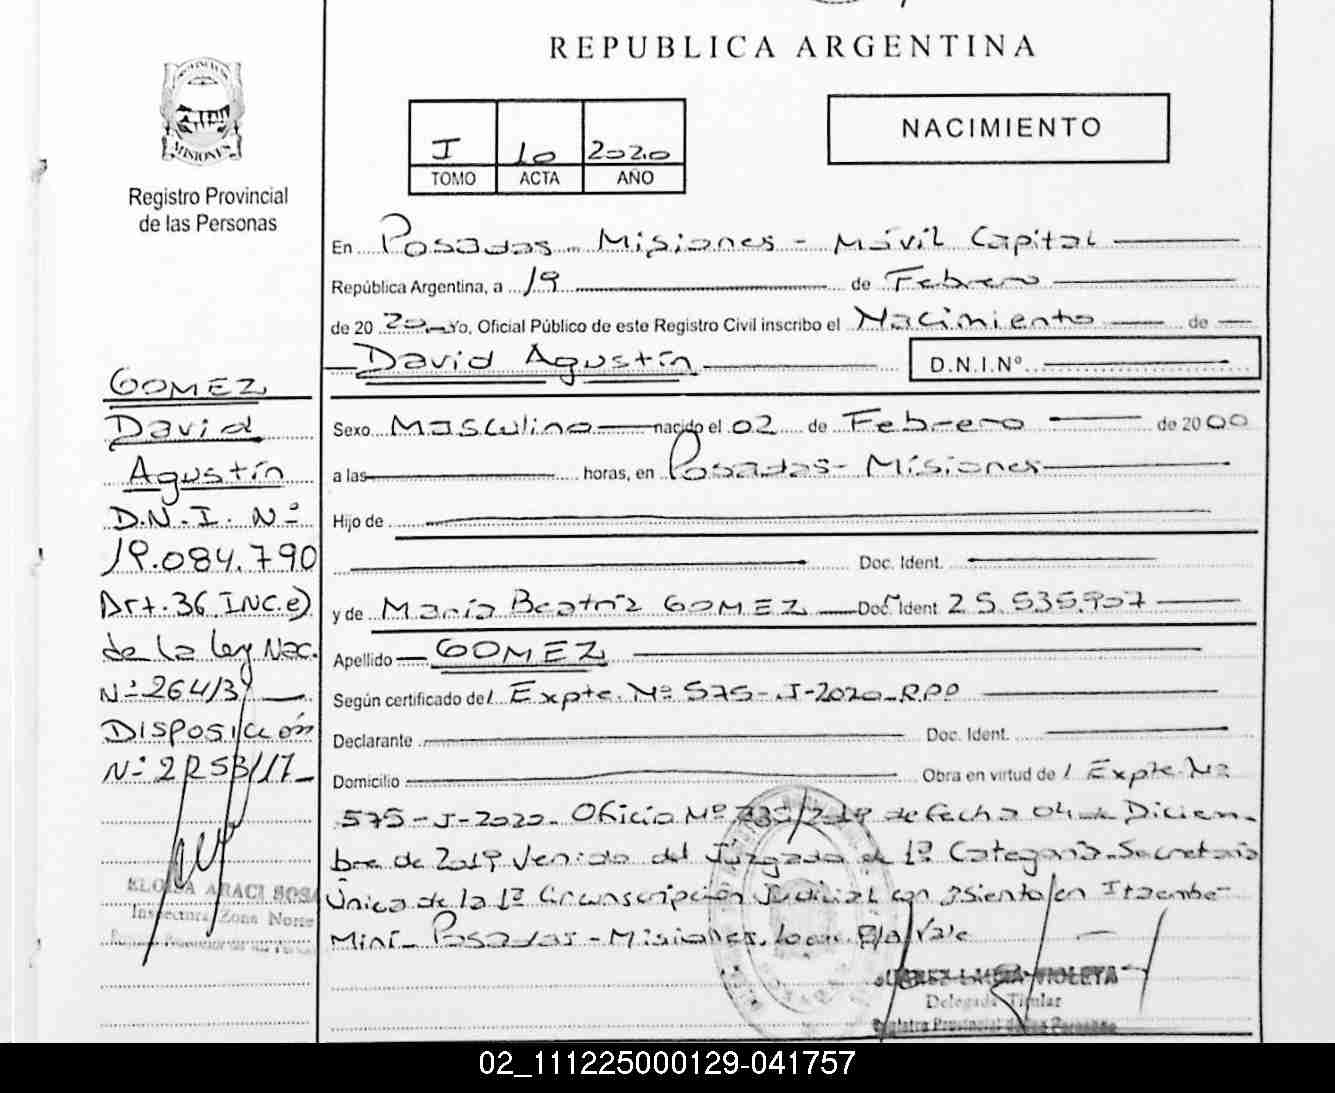 REPUBLICA ARGENTINA
MISIONES
Registro Provincial
de las Personas
I 10 2020
TOMO ACTA AÑO
NACIMIENTO
En Posadas - Misiones - Móvil Capital
República Argentina, a 19 de Febrero
de 20 20 Yo, Oficial Público de este Registro Civil inscribo el Nacimiento de
David Agustín D.N.I.Nº
GOMEZ
David
Agustín
D.N.I. Nº
19.084.790
Art. 36 INC.e)
de la ley Nac.
Nº 264/34
DISPOSICIÓN
Sexo Masculino nacido el 02 de Febrero de 20 00
a las horas, en Posadas - Misiones
Hijo de
Doc. Ident.
y de María Beatríz GOMEZ Doc. Ident. 25.535.907
Apellido GOMEZ
Según certificado del Expte. Nº 575-J-2020-R.P.P
Declarante Doc. Ident.
Domicilio Obra en virtud de / Expte. Nº
575-J-2020. Oficio Nº de fecha 04 de Diciem-
bre de 2019 Venido del Juzgado de 1ª Categoría-Secretaría
Única de la 1ª Circunscripción Judicial con asiento en Itaembé
Miní - Posadas - Misiones.
ELOISA ARACI SOSA
Inspectora Zona Norte
SUAREZ LAURA VIOLETA
Delegada Titular
Registro Provincial de las Personas
02_111225000129-041757